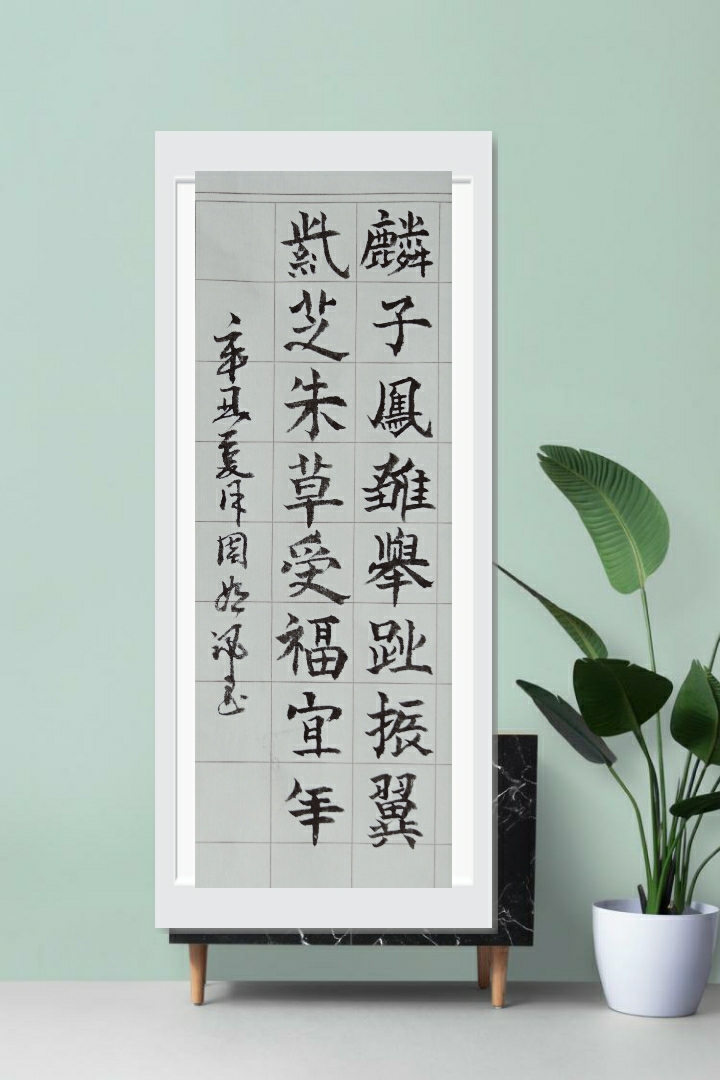 麟子鳳雛舉趾振翼
紫芝朱草受福宜年
辛丑夏月周